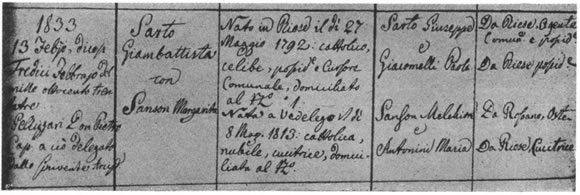 1833
13 Febjo, dicesi
Tredici Febbrajo del
mille ottocento trenta
tre
Pellizzari Don Pietro
Cap. a ciò delegato
dallo
Sarto
Giambattista
con
Sanson Margarita
Nato in Riese il dì 27
Maggio 1792: cattolico,
celibe, possid. e Cursore
Comunale, domiciliato
al N.°
Nata a Vedelago il dì
8 Mag. 1813: cattolica,
nubile, cucitrice, domici-
liata al N.°
Sarto Giuseppe
e
Giacomelli Paola
Sanson Melchior
e
Antonini Maria
Da Riese,
e possid.
Da Riese possid.
Da
Da Riese, Cucitrice